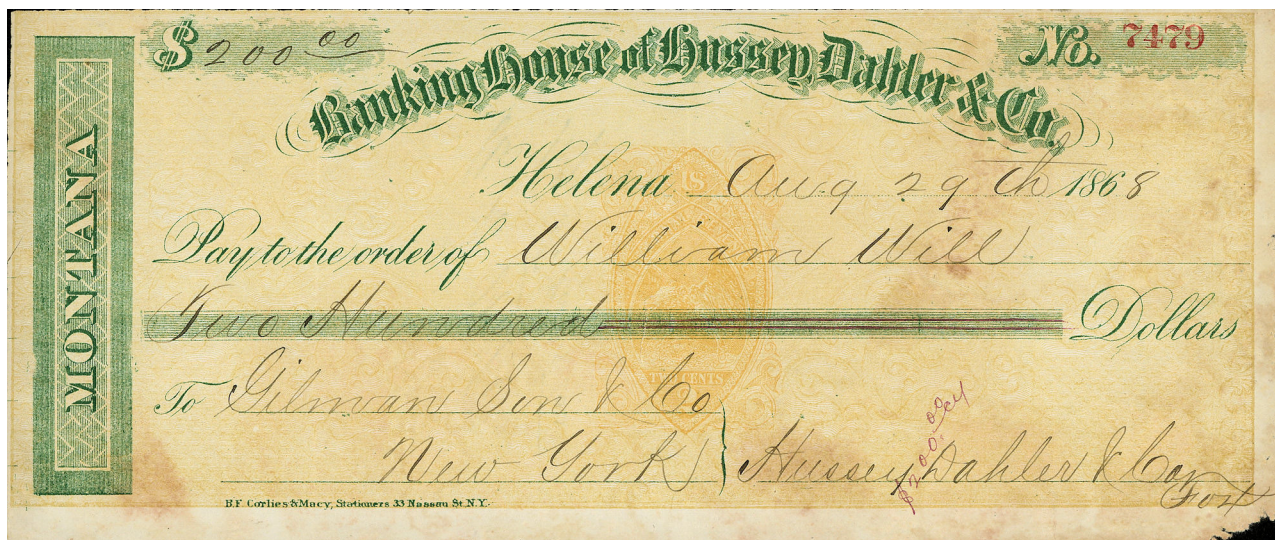 $ 200 00
No. 7479
Banking House of Hussey, Dahler & Co.
MONTANA
Helena Aug 29th 1868
Pay to the order of William Will
Two Hundred Dollars
To Gilman Son & Co
New York
Hussey Dahler & Co
$200.00
TWO CENTS
B.F. Corlies & Macy, Stationers 33 Nassau St. N.Y.